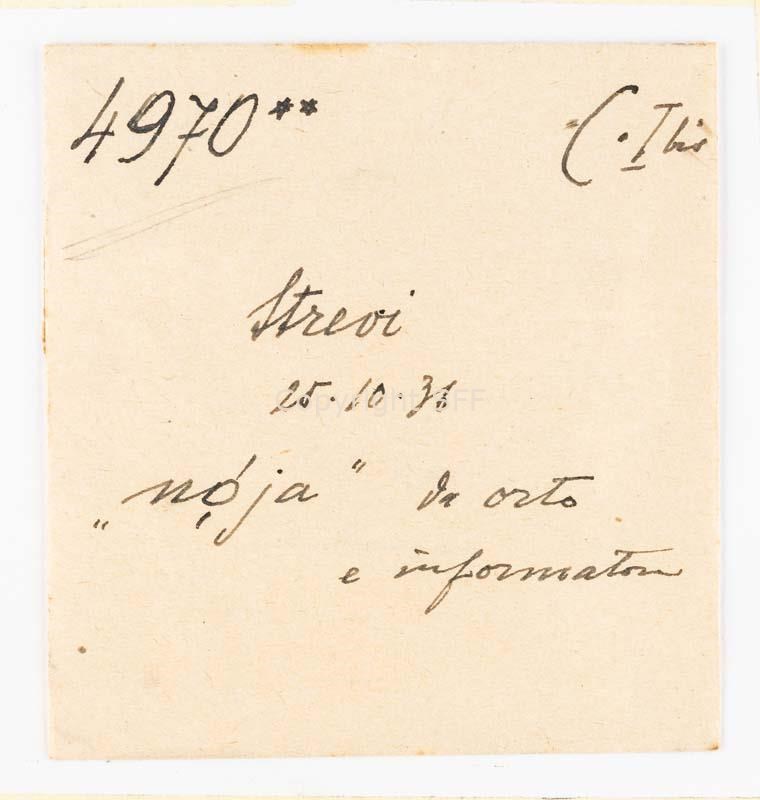 4970** C. I bis
Strevi
25.10.38
Copyright SFF
„nọ́ja" da orto
e informatore